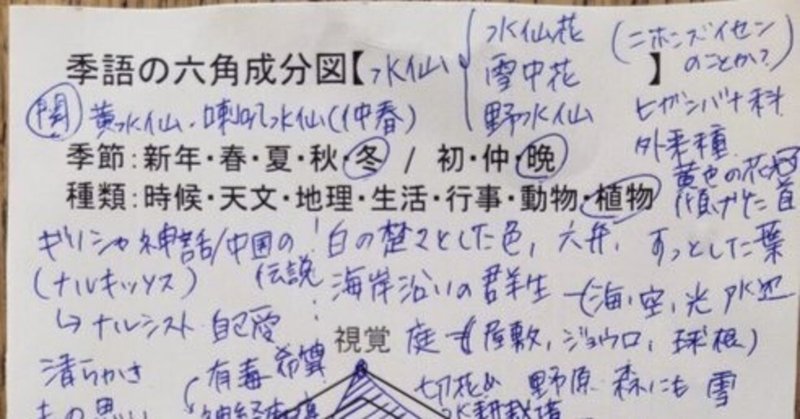 季語の六角成分図【水仙 水仙花 雪中花 野水仙 】
(ニホンズイセンのことか?)
ヒガンバナ科
外来種
黄色の花冠
傾げた首
関 黄水仙・喇叭水仙(仲春)
季節:新年・春・夏・秋・冬 / 初・仲・晩
種類:時候・天文・地理・生活・行事・動物・植物
ギリシャ神話/中国の伝説
(ナルキッソス)
↳ナルシスト 自己愛
白の楚々とした色、六弁、すっとした葉
海岸沿いの群生 (海、空、光 水辺
視覚 庭 (屋敷、ジョウロ、球根)
清らかさ
有毒 希望
切花 野原 森にも 雪
水耕栽培